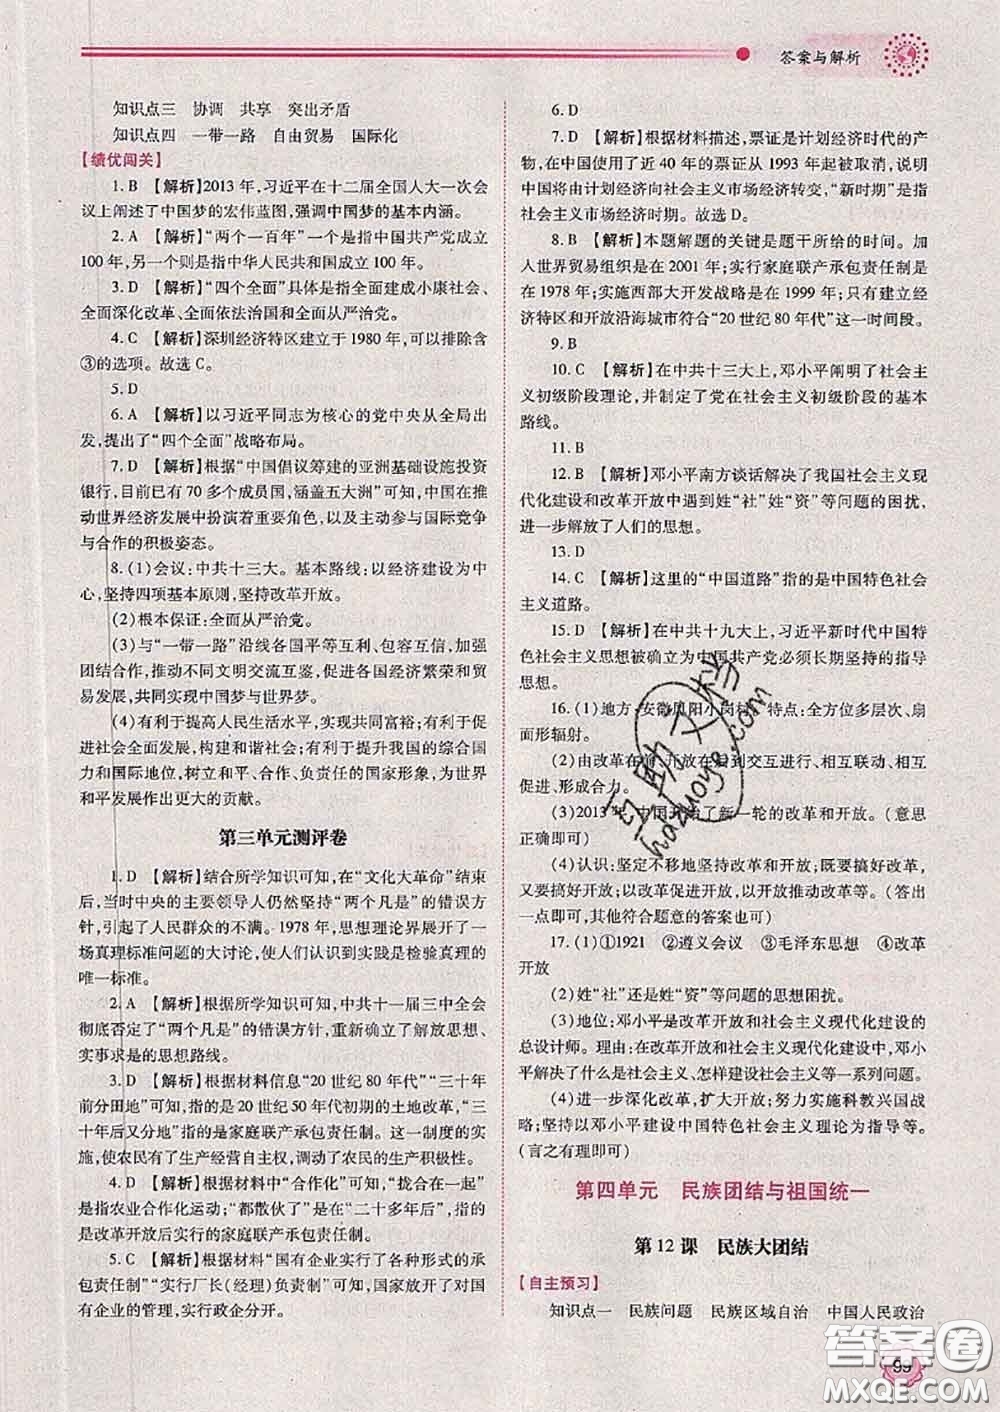 答案与解析
知识点三 协调 共享 突出矛盾
知识点四 一带一路 自由贸易 国际化
【绩优闯关】
1. B 【解析】2013 年,习近平在十二届全国人大一次会
议上阐述了中国梦的宏伟蓝图,强调中国梦的基本内涵。
2. A 【解析】“两个一百年”一个是指中国共产党成立
100 年,另一个则是指中华人民共和国成立 100 年。
3. D 【解析】“四个全面”具体是指全面建成小康社会、
全面深化改革、全面依法治国和全面从严治党。
4. C 【解析】深圳经济特区建立于 1980 年,可以排除含
③的选项。故选 C。
5. D
6. A 【解析】以习近平同志为核心的党中央从全局出
发,提出了“四个全面”战略布局。
7. D 【解析】根据“中国倡议筹建的亚洲基础设施投资
银行,目前已有 70 多个成员国,涵盖五大洲”可知,中国在推
动世界经济发展中扮演着重要角色,以及主动参与国际竞争
与合作的积极姿态。
8. (1)会议:中共十三大。基本路线:以经济建设为中
心,坚持四项基本原则,坚持改革开放。
(2)根本保证:全面从严治党。
(3)与“一带一路”沿线各国平等互利、包容互信,加强
团结合作,推动不同文明交流互鉴,促进各国经济繁荣和贸
易发展,共同实现中国梦与世界梦。
(4)有利于提高人民生活水平,实现共同富裕;有利于促
进社会全面发展,构建和谐社会;有利于提升我国的综合国
力和国际地位,树立和平、合作、负责任的国家形象,为世界
和平发展作出更大的贡献。
第三单元测评卷
1. D 【解析】结合所学知识可知,在“文化大革命”结束
后,当时中央的主要领导人仍然坚持“两个凡是”的错误方
针,引起了人民群众的不满。1978 年,思想理论界展开了一
场真理标准问题的大讨论,使人们认识到实践是检验真理的
唯一标准。
2. A 【解析】根据所学知识可知,中共十一届三中全会
彻底否定了“两个凡是”的错误方针,重新确立了解放思想、
实事求是的思想路线。
3. D 【解析】根据材料信息“20 世纪 80 年代”“三十年
前分田地”可知,指的是 20 世纪 50 年代初期的土地改革,“三
十年后又分地”指的是家庭联产承包责任制。这一制度的实
施,使农民有了生产经营自主权,调动了农民的生产积极性。
4. D 【解析】根据材料中“合作化”可知,“拢合在一起”
是指农业合作化运动;“都散伙了”是在“二十多年后”,指的
是改革开放后实行的家庭联产承包责任制。
5. C 【解析】根据材料“国有企业实行了各种形式的承
包责任制”“实行厂长(经理)负责制”可知,国家放开了对国
有企业的管理,实行政企分开。
6. D
7. D 【解析】根据材料描述,票证是计划经济时代的产
物,在中国使用了近 40 年的票证从 1993 年起被取消,说明
中国将由计划经济向社会主义市场经济转变,“新时期”是指
社会主义市场经济时期。故选 D。
8. B 【解析】本题解题的关键是题干所给的时间。加
入世界贸易组织是在 2001 年;实行家庭联产承包责任制是
在 1978 年;实施西部大开发战略是在 1999 年;只有建立经
济特区和开放沿海城市符合“20 世纪 80 年代”这一时间段。
9. B
10. C 【解析】在中共十三大上,邓小平阐明了社会主
义初级阶段理论,并制定了党在社会主义初级阶段的基本
路线。
11. B
12. B 【解析】邓小平南方谈话解决了我国社会主义现
代化建设和改革开放中遇到姓“社”姓“资”等问题的困扰,
进一步解放了人们的思想。
13. D
14. C 【解析】这里的“中国道路”指的是中国特色社会
主义道路。
15. D 【解析】在中共十九大上,习近平新时代中国特
色社会主义思想被确立为中国共产党必须长期坚持的指导
思想。
16. (1)地方:安徽凤阳小岗村。特点:全方位多层次、扇
面形辐射。
(2)由改革在前,开放在后到交互进行、相互交错、相互
促进、形成合力。
(3)2013 年,中国开始了新一轮的改革和开放。(意思
正确即可)
(4)认识:坚定不移地坚持改革和开放;既要搞好改革,
又要搞好开放;以改革促进开放,以开放推动改革等。(答出
一点即可,其他符合题意的答案也可)
17. (1)①1921 ②遵义会议 ③毛泽东思想 ④改革
开放
(2)姓“社”还是姓“资”等问题的思想困扰。
(3)地位:邓小平是改革开放和社会主义现代化建设的
总设计师。理由:在改革开放和社会主义现代化建设中,邓小
平解决了什么是社会主义、怎样建设社会主义等一系列问题。
(4)进一步深化改革,扩大开放;努力实施科教兴国战
略;坚持以邓小平建设中国特色社会主义理论为指导等。
(言之有理即可)
第四单元 民族团结与祖国统一
第 12 课 民族大团结
【自主预习】
知识点一 民族问题 民族区域自治 中国人民政治
99
答案圈
MXQE.COM
互助文档
hazuoye.com